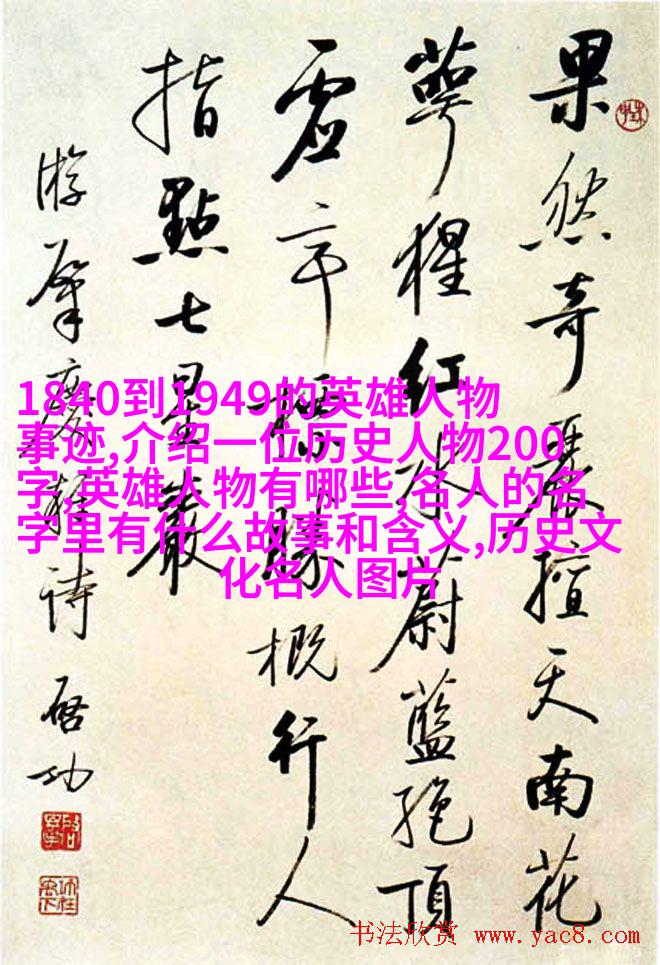 果然奇麗擅天南花
萼猩紅水蔚藍絕頂
虛亭標勝概行人
指點七星巖
游肇慶雜詩 啓功
1840到1949的英雄人物
事迹,介绍一位历史人物200
字,英雄人物有哪些,名人的名
字里有什么故事和含义,历史文
化名人图片
书法欣赏 www.yac8.com